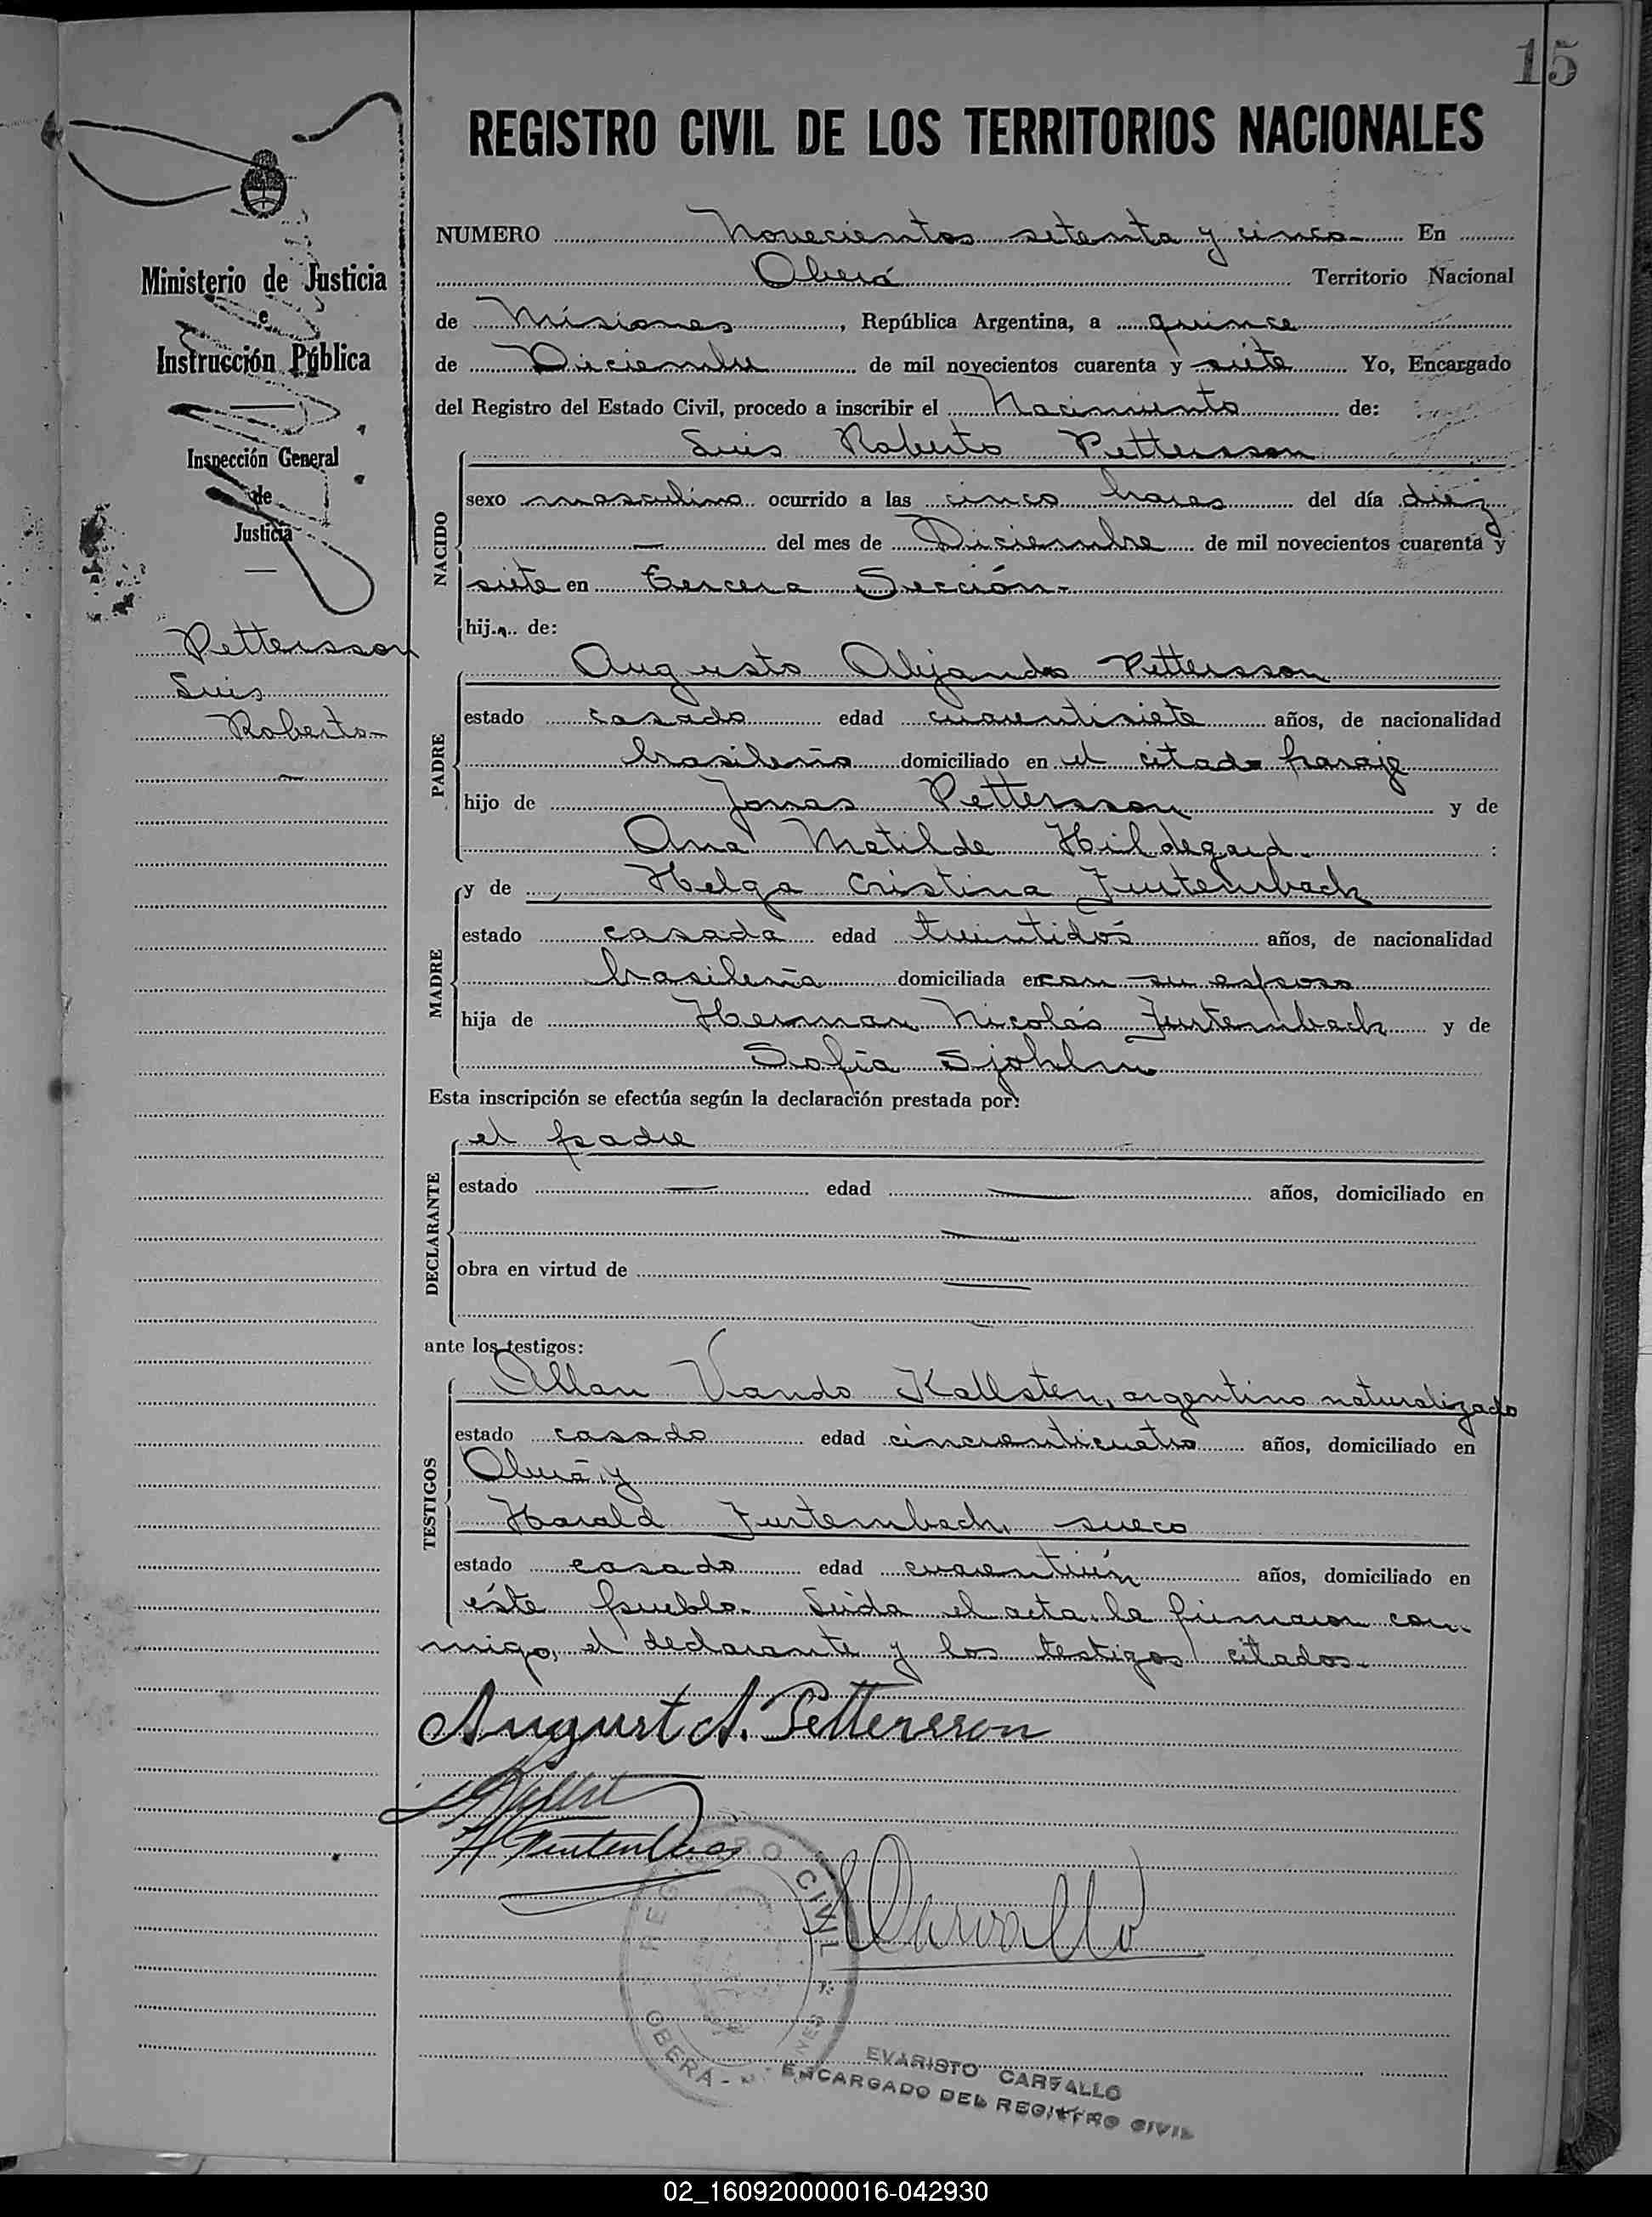 15
REGISTRO CIVIL DE LOS TERRITORIOS NACIONALES
Ministerio de Justicia
e
Instrucción Pública
Inspección General
de
Justicia
Pettersson
Luis
Roberto
NUMERO Novecientos setenta y cinco En
Oberá Territorio Nacional
de Misiones, República Argentina, a quince
de Diciembre de mil novecientos cuarenta y siete Yo, Encargado
del Registro del Estado Civil, procedo a inscribir el Nacimiento de:
NACIDO
Luis Roberto Pettersson
sexo masculino ocurrido a las cinco horas del día diez
— del mes de Diciembre de mil novecientos cuarenta y
siete en Tercera Sección.-
hijo de:
PADRE
Augusto Alejandro Pettersson
estado casado edad cuarentisiete años, de nacionalidad
brasileño domiciliado en el citado paraje
hijo de Jonas Pettersson y de
Ana Matilde Hildegard
MADRE
y de Helga Cristina Furtembach
estado casada edad treintidós años, de nacionalidad
brasileña domiciliada en con su esposo
hija de Herman Nicolás Furtembach y de
Sofía
Esta inscripción se efectúa según la declaración prestada por:
DECLARANTE
el padre
estado — edad — años, domiciliado en
—
obra en virtud de —
—
ante los testigos:
TESTIGOS
Allan Vando Kallsten, argentino naturalizado
estado casado edad cincuenticuatro años, domiciliado en
Oberá y
Harald Furtembach, sueco
estado casado edad cuarentiún años, domiciliado en
éste pueblo. Leída el acta, la firmaron con-
migo, el declarante y los testigos citados.-
August A. Pettersson
Carvallo
REGISTRO CIVIL
OBERA -
EVARISTO CARVALLO
ENCARGADO DEL REGISTRO CIVIL
02_160920000016-042930